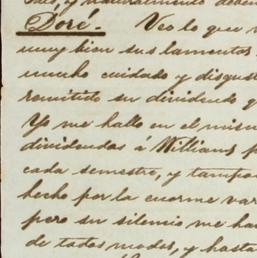 y naturalmente deben
Doré. Veo lo que
muy bien sus lamentos
mucho cuidado y disgust
remitido su dividendo q
Yo me hallo en el mism
dividendos á Williams p
cada semestre, y tampo
hecho por la enorme var
pero su silencio me ha
de todos modos, y hasta